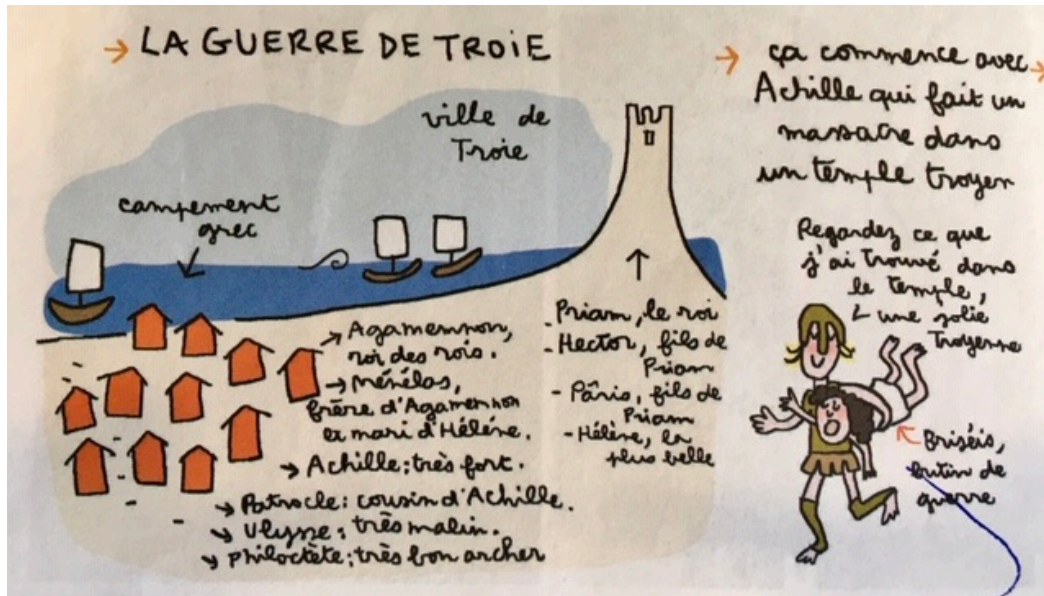 → LA GUERRE DE TROIE
ville de
Troie
campement
grec
→ Agamemnon,
roi des rois.
→ Ménélas,
frère d'Agamemnon
et mari d'Hélène.
→ Achille : très fort.
→ Patrocle : cousin d'Achille.
→ Ulysse : très malin.
→ Philoctète : très bon archer
- Priam, le roi
- Hector, fils de
Priam
- Pâris, fils de
Priam
- Hélène, la
plus belle
→ ça commence avec →
Achille qui fait un
massacre dans
un temple troyen
Regardez ce que
j'ai trouvé dans
le temple,
une jolie
Troyenne
Briséis,
butin de
guerre